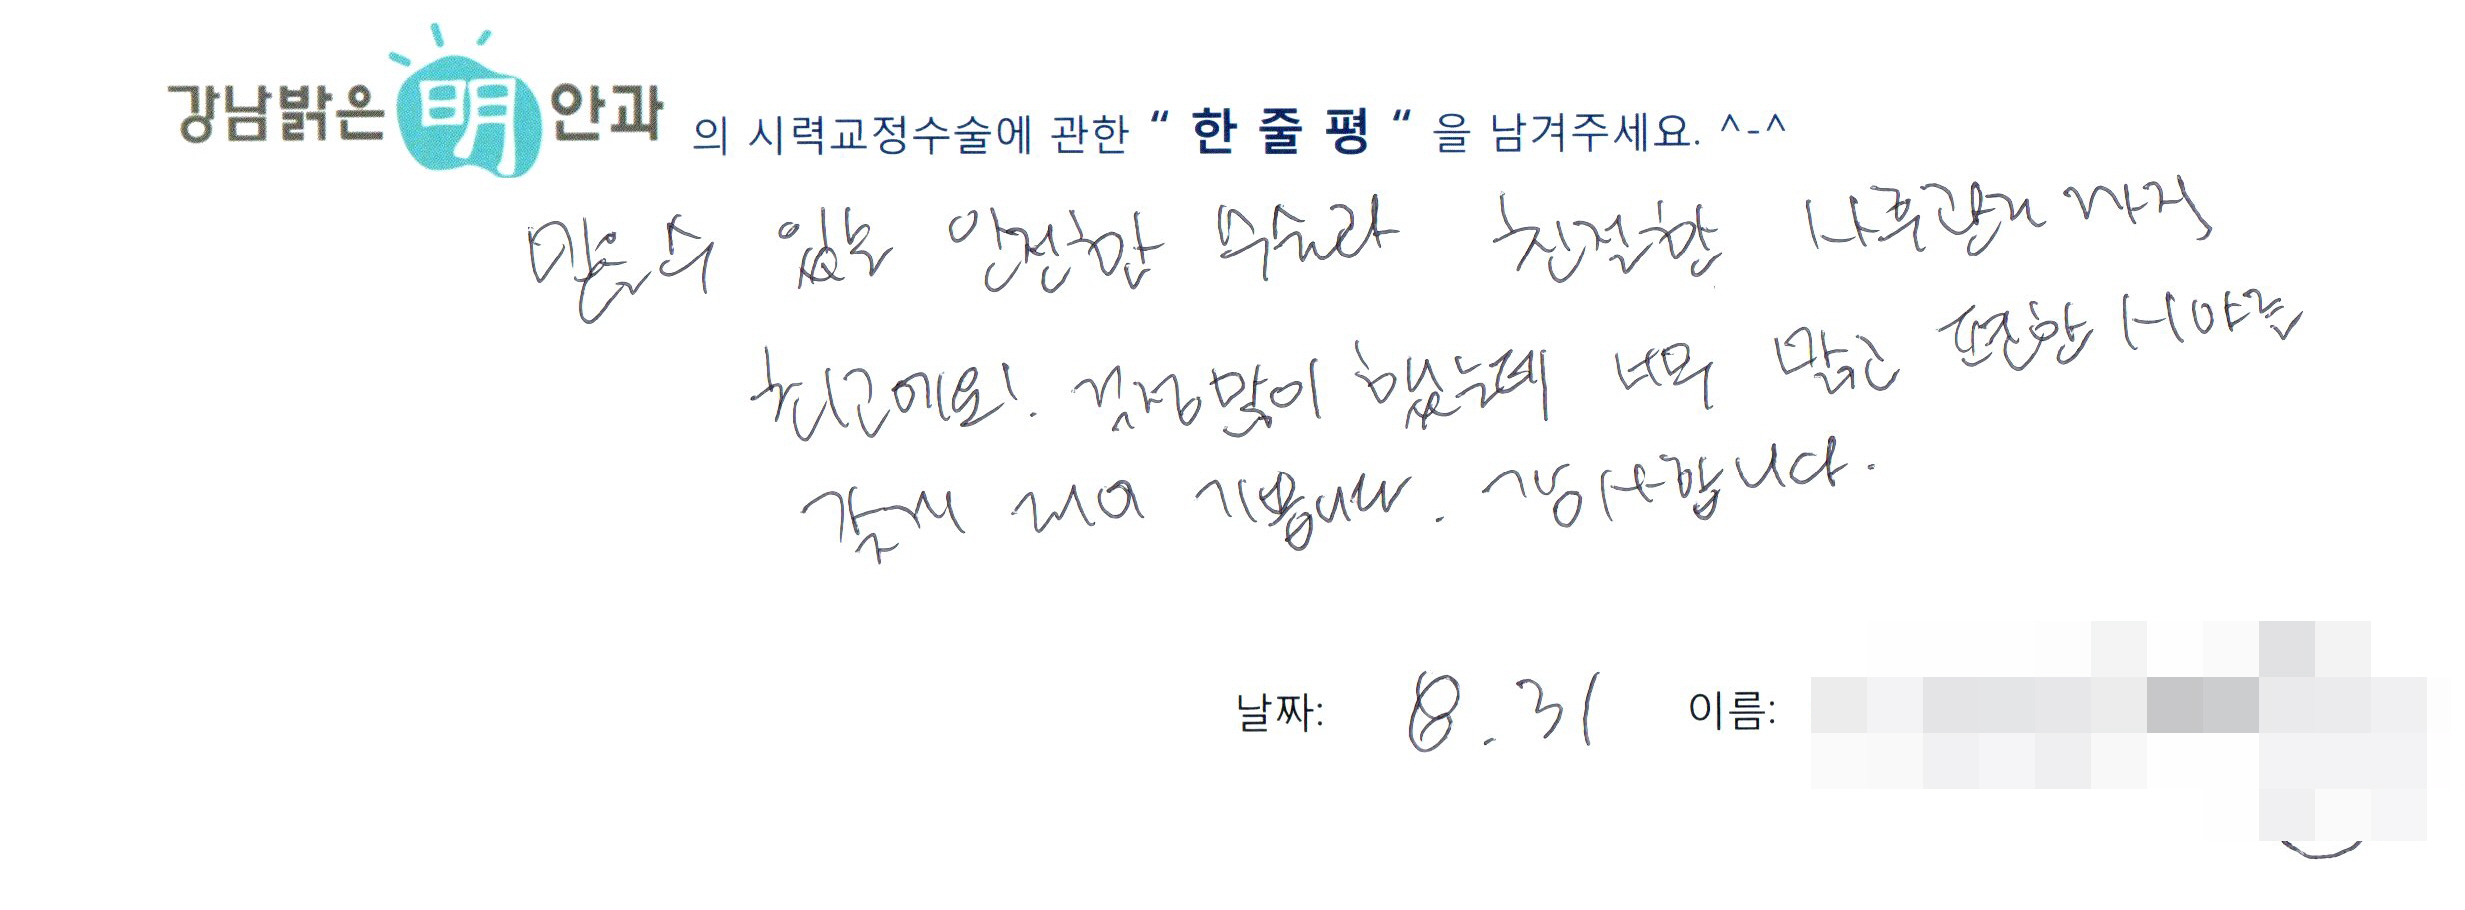 강남밝은 明 안과 의 시력교정수술에 관한 “ 한 줄 평 “ 을 남겨주세요. ^-^
믿을수 있는 안전한 수술과 친절한 사후관리 까지
최고에요! 걱정많이 했는데 너무 맑고 편한 시야를
갖게 되어 기쁩니다. 감사합니다.
날짜: 8.31 이름: